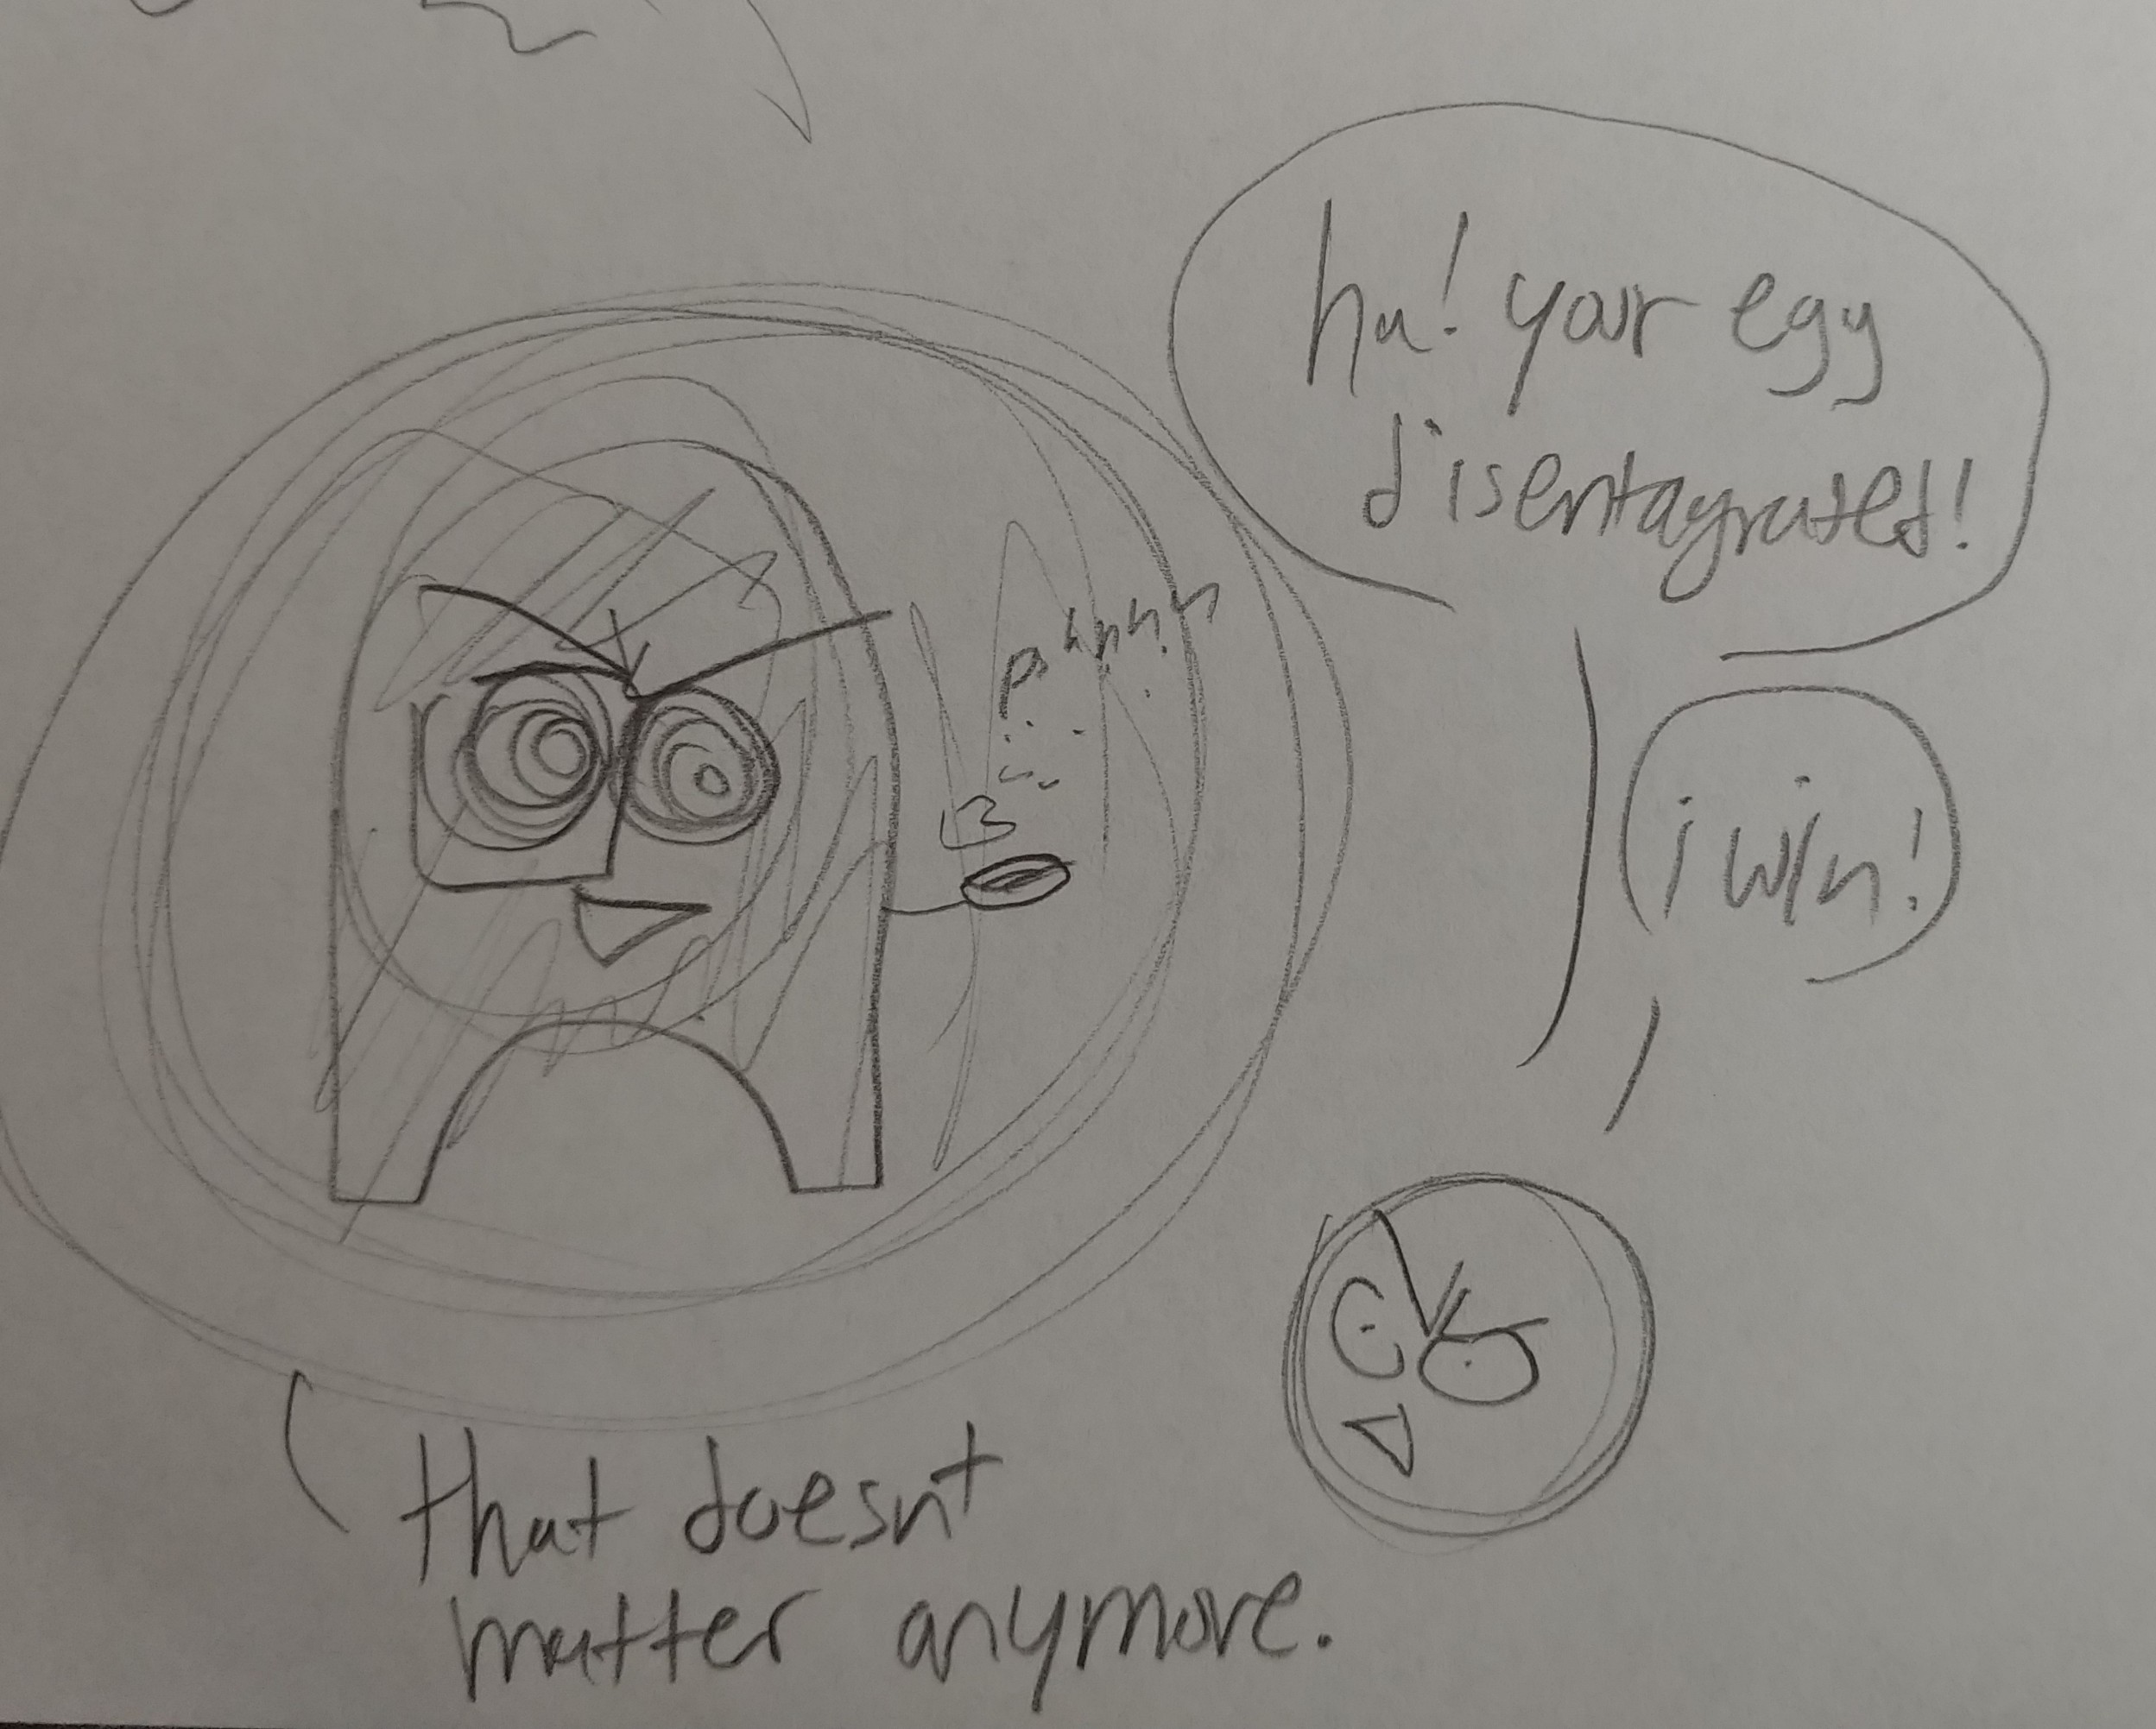 ha! your egy
disentagrated!
i win!
that doesnt
matter anymore.